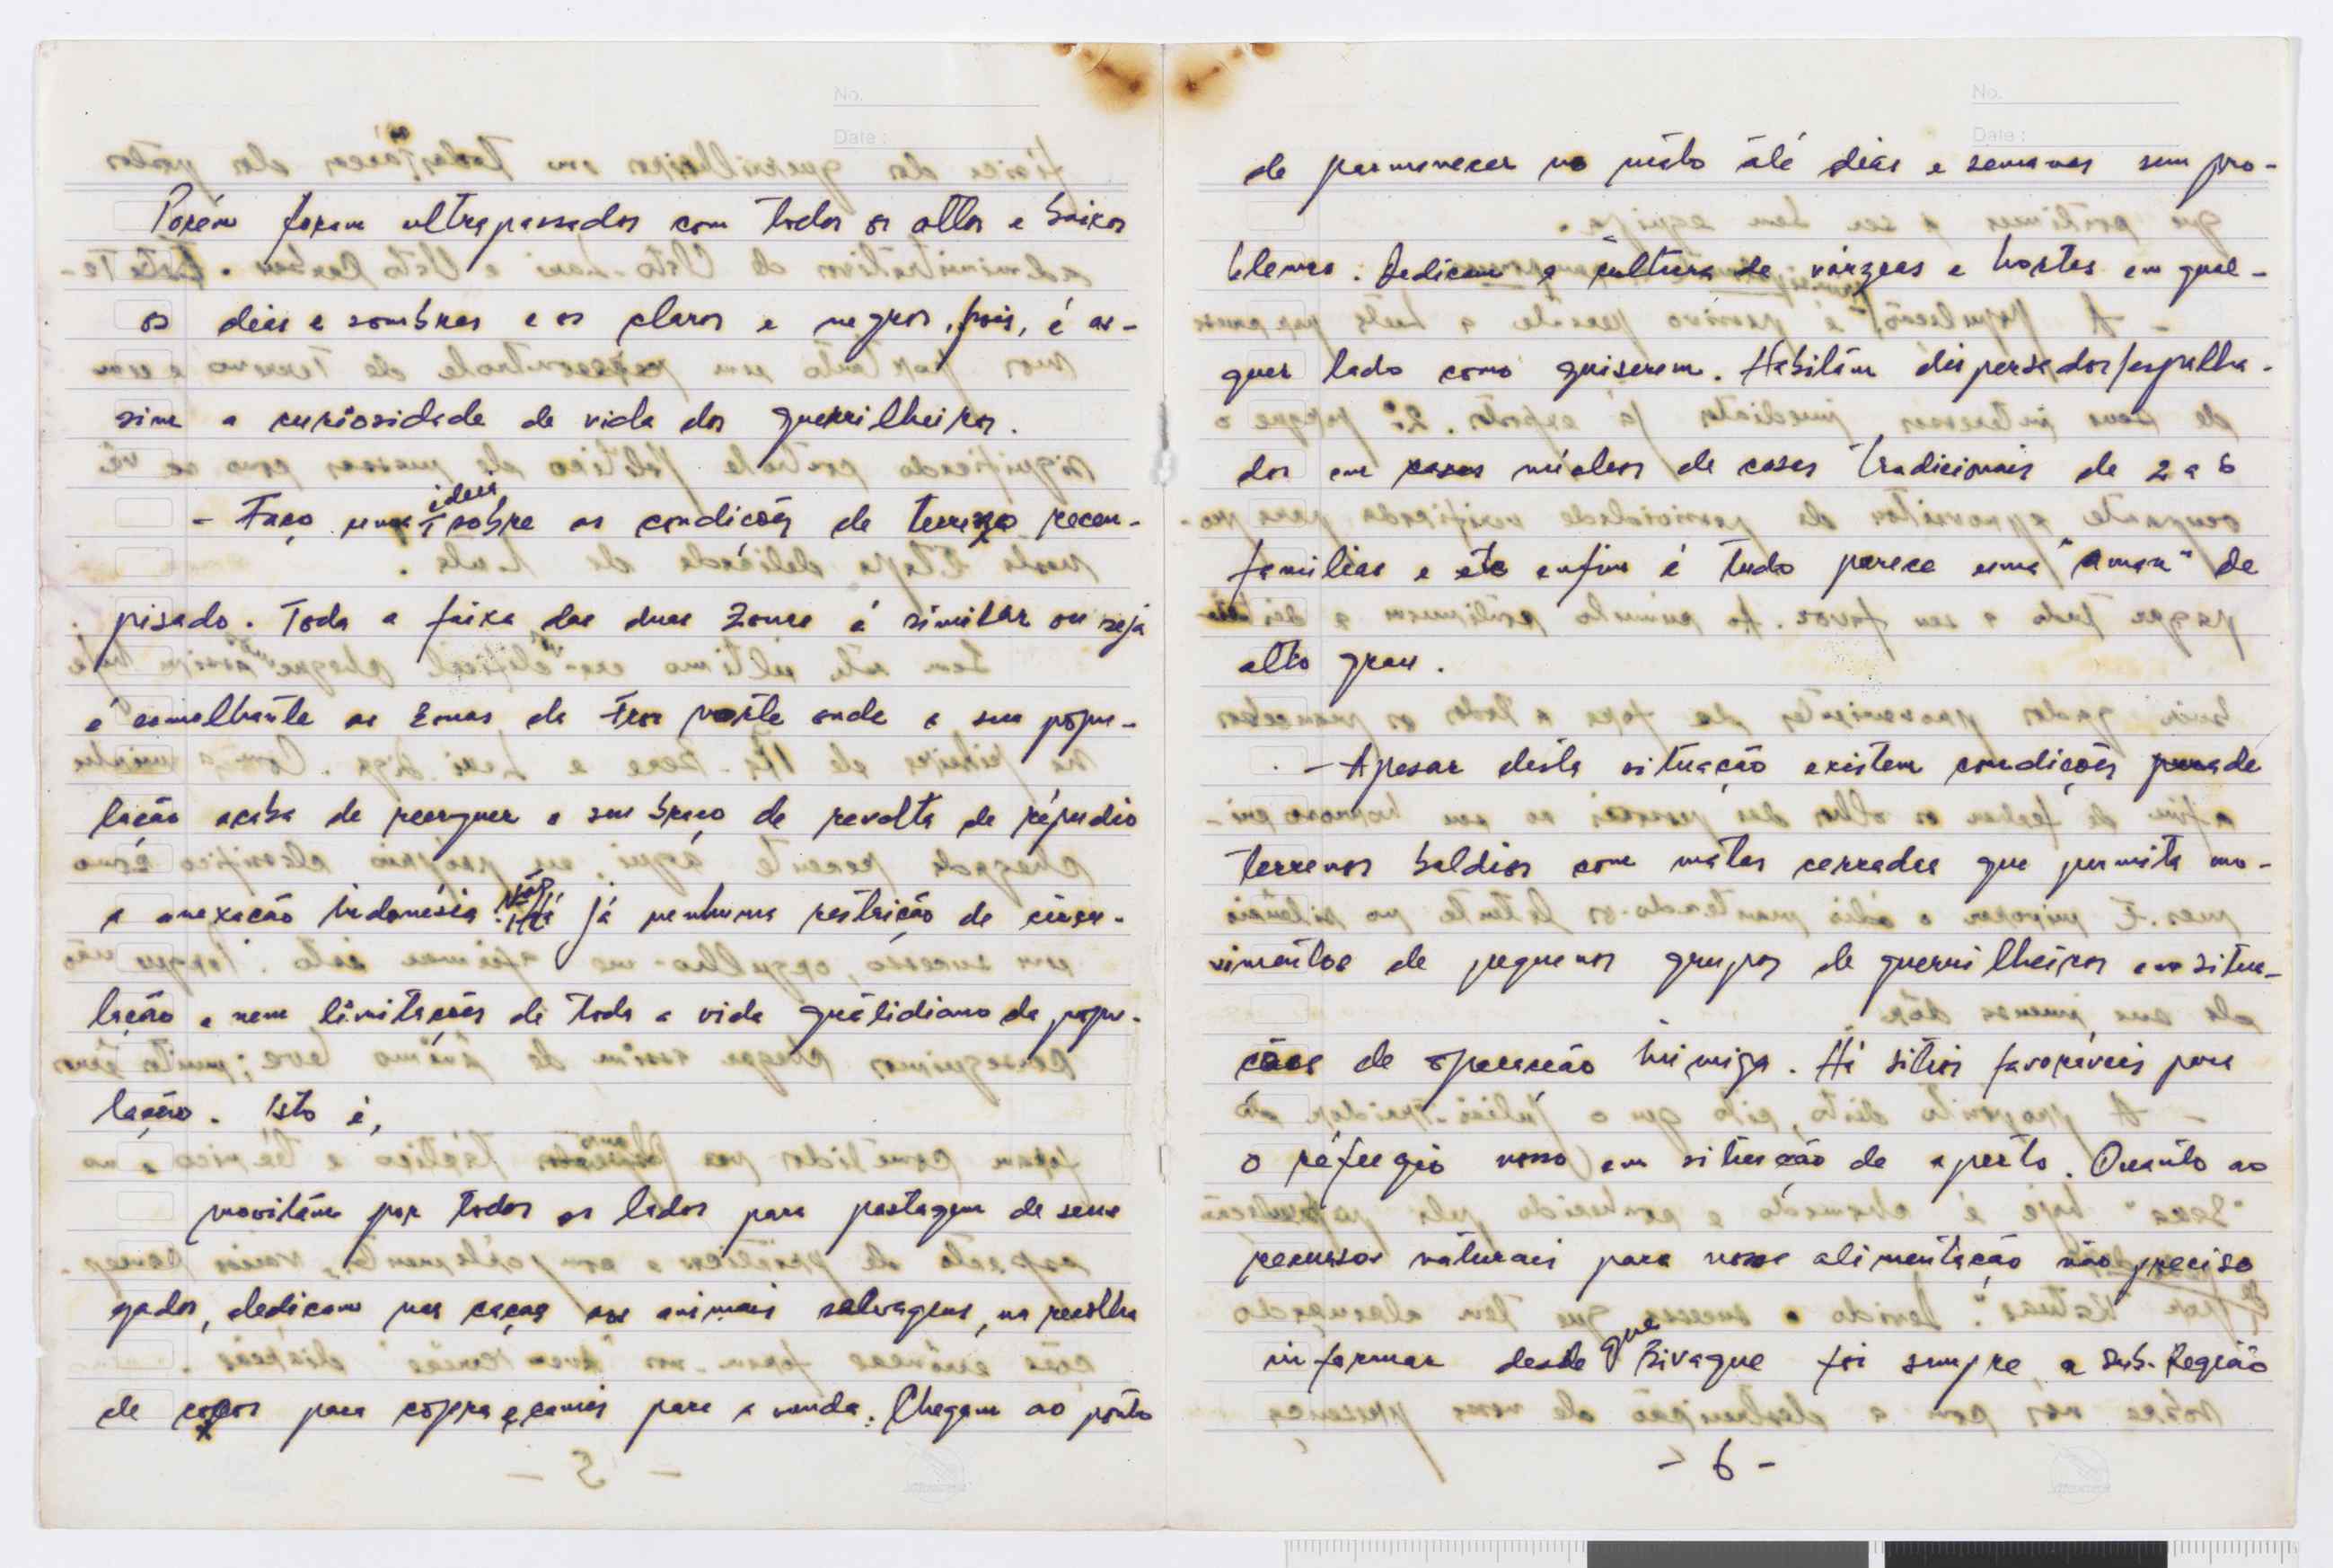 No.
Date :
Porém foram ultrapassados com todos os altos e baixos
os dias e sombras e os claros e negros, pois, é as-
sim a curiosidade de vida dos guerrilheiros.
- Faço uma ideia sobre as condições de terreno recem-
pisado. Toda a faixa das duas zonas é similar ou seja
é semelhante as zonas da Fron norte onde a sua popu-
lação acaba de reerguer o seu braço de revolta de répudio
a anexação indonésia. Não há já nenhuma restrição de circu-
lação e nem limitações de toda a vida quotidiano da popu-
lação. Isto é,
movitam por todos os lados para pastagem de seus
gados, dedicam nas caças aos animais selvagens, na recolha
de cocos para copra e camis para a venda. Chegam ao ponto
No.
Date :
de permanecer no mato até dias e semanas sem pro-
blemas. Dedicam a cultura de várzeas e hortas em qual-
quer lado como quiserem. Habitam dispersados/espalha-
dos em núcleos de casas tradicionais de 2 a 6
familias e etc enfim é tudo parece uma "aman" de
alto grau.
- Apesar desta situação existem condições de
terrenos baldios com matas cerradas que permita mo-
vimentos de pequenos grupos de guerrilheiros em situa-
ções de operação inimiga. Há sitios favoráveis para
o réfugio nosso em situação de aperto. Quanto ao
recursos naturais para nossa alimentação não preciso
informar desde que Bivaque foi sempre a Sub-Região
- 6 -